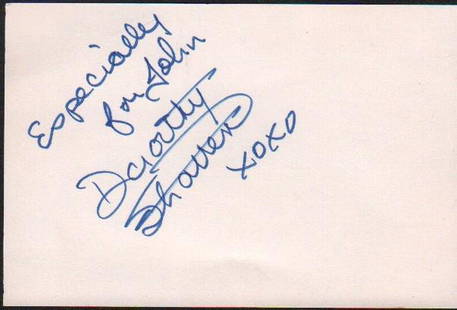 Especially
for John
Dorothy
Shatten
XOXO